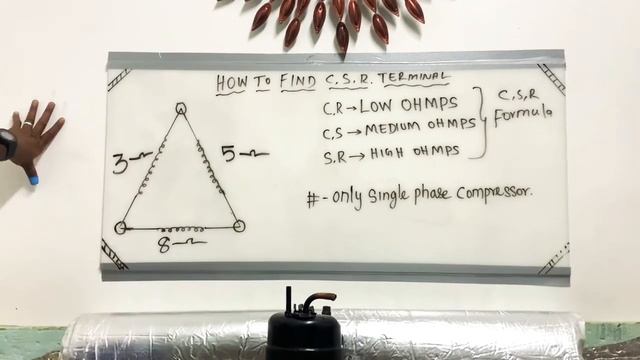 HOW TO FIND C.S.R. TERMINAL
C.R → LOW OHMPS
C.S → MEDIUM OHMPS
S.R → HIGH OHMPS
C,S,R
Formula
3 Ω
5 Ω
8 Ω
# - only Single phase Compressor.